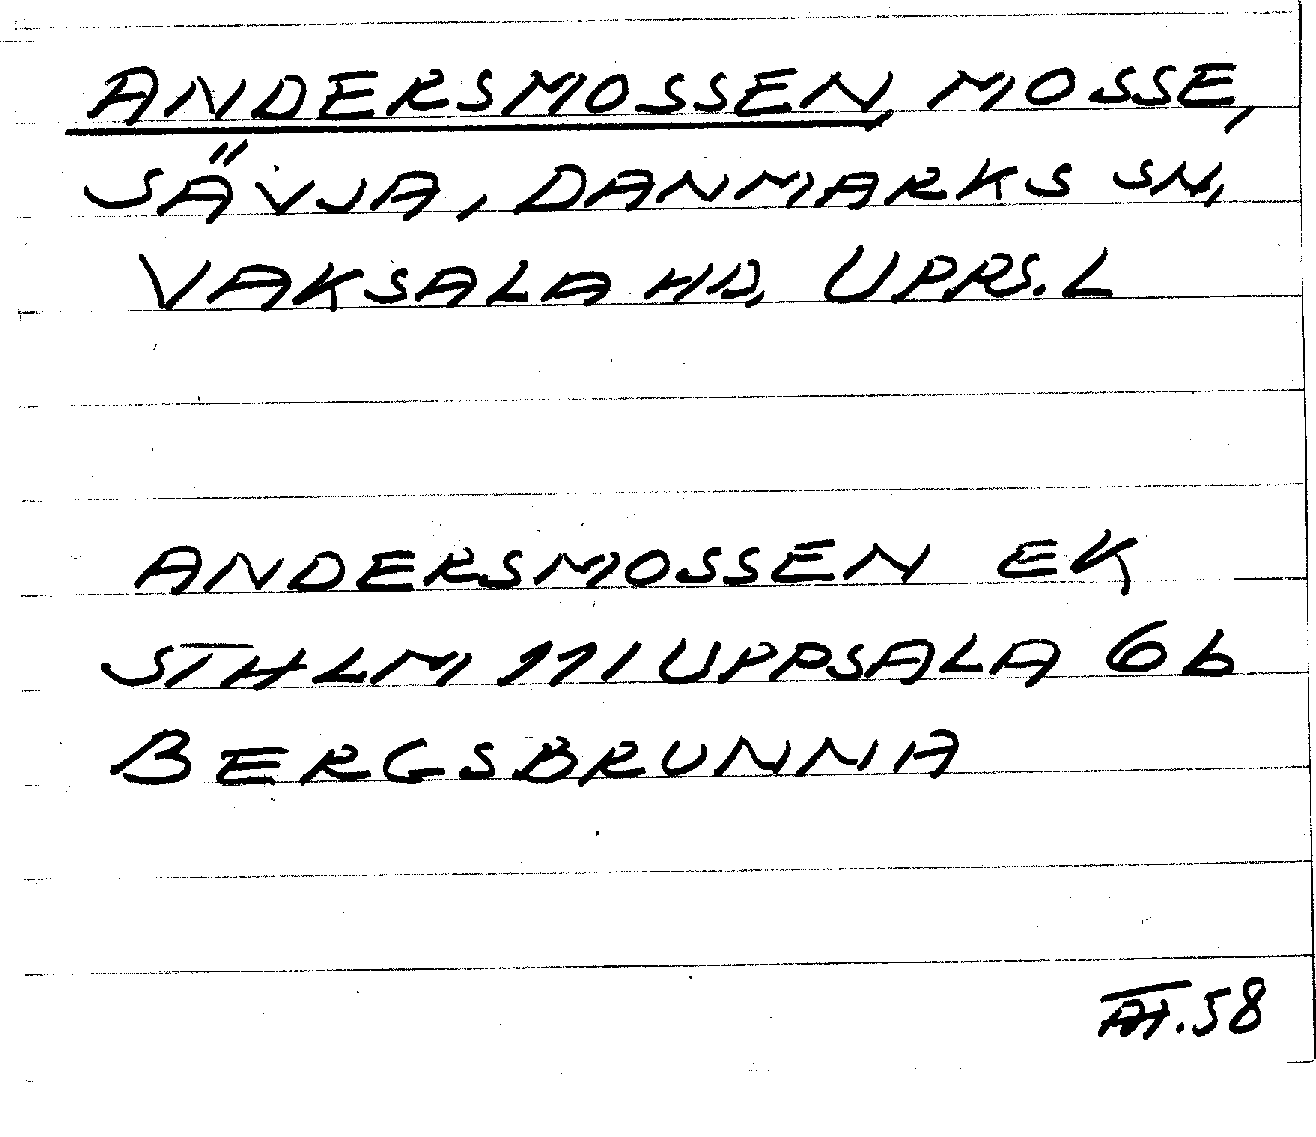 ANDERSMOSSEN, MOSSE,
SÄVJA, DANMARKS SN,
VAKSALA HD, UPPS. L
ANDERSMOSSEN EK
STHLM 111 UPPSALA 6b
BERGSBRUNNA
58